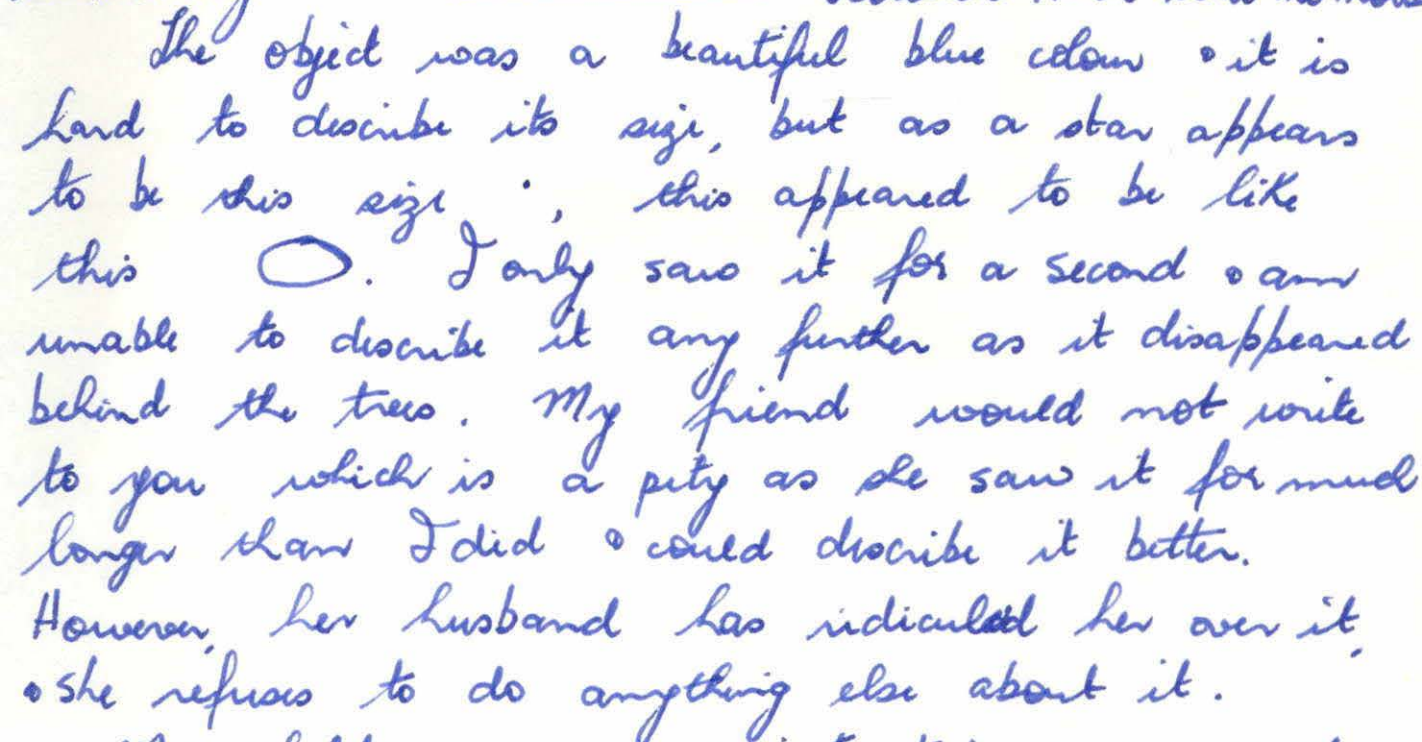 The object was a beautiful blue colour & it is
hard to describe its size, but as a star appears
to be this size ·, this appeared to be like
this . I only saw it for a second & am
unable to describe it any further as it disappeared
behind the trees. My friend would not write
to you which is a pity as she saw it for much
longer than I did & could describe it better.
However, her husband has ridiculed her over it,
& she refuses to do anything else about it.